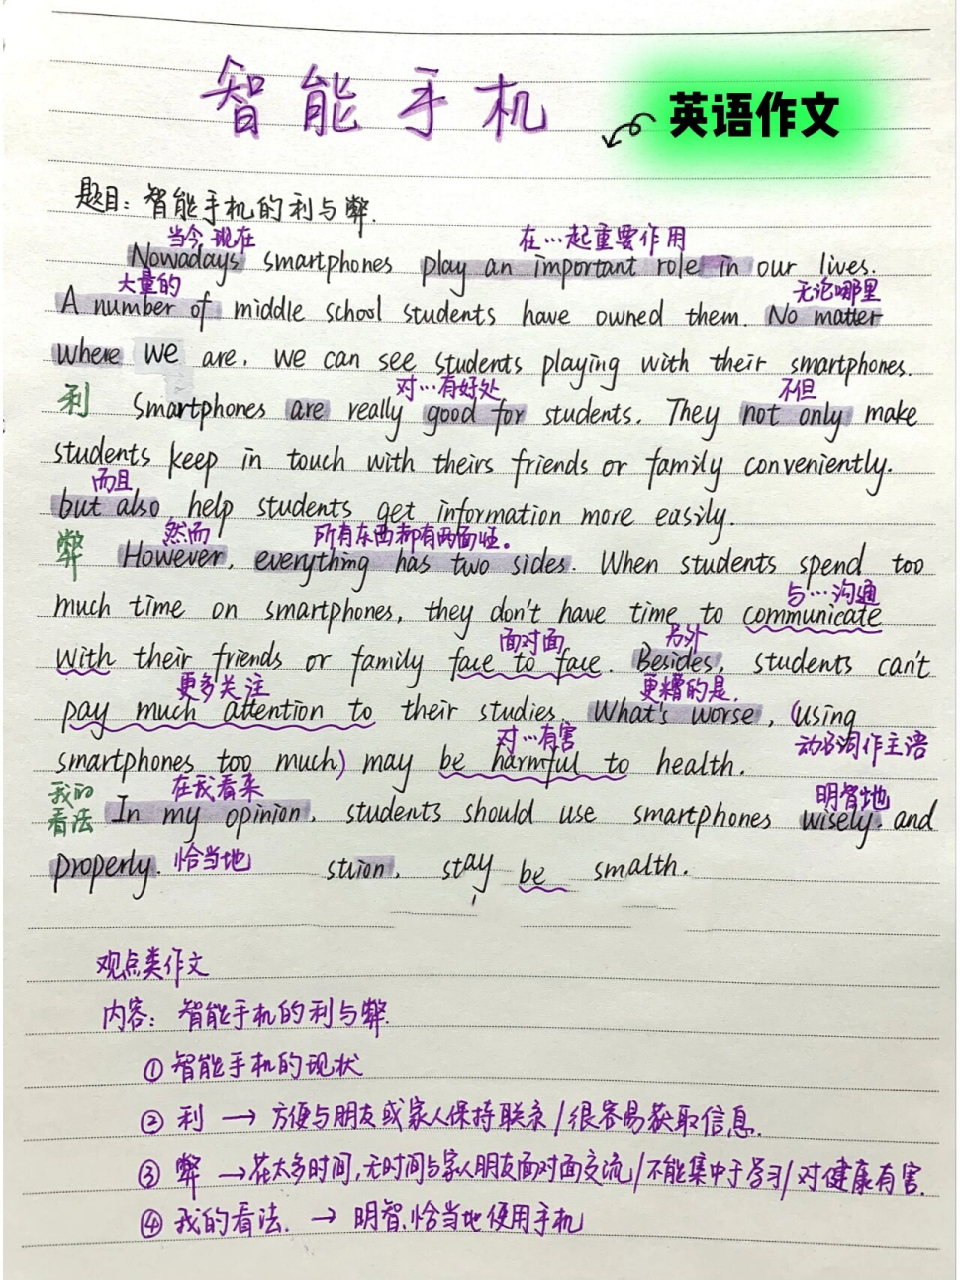 智能手机
英语作文
题目：智能手机的利与弊.
当今 现在 在…起重要作用
Nowadays smartphones play an important role in our lives.
大量的 无论哪里
A number of middle school students have owned them. No matter
where we are, we can see students playing with their smartphones.
利 对…有好处 不但
Smartphones are really good for students. They not only make
students keep in touch with theirs friends or family conveniently.
而且
but also help students get information more easily.
弊 然而 所有东西都有两面性。
However, everything has two sides. When students spend too
与…沟通
much time on smartphones, they don't have time to communicate
面对面 另外
with their friends or family face to face. Besides, students can't
更多关注 更糟的是.
pay much attention to their studies. What's worse, (using
对…有害 动名词作主语
smartphones too much) may be harmful to health.
我的看法 在我看来 明智地
In my opinion, students should use smartphones wisely and
properly. 恰当地 stuion, stay be smalth.
观点类作文
内容：智能手机的利与弊.
① 智能手机的现状
② 利 → 方便与朋友或家人保持联系/很容易获取信息.
③ 弊 → 花太多时间,无时间与家人朋友面对面交流/不能集中于学习/对健康有害.
④ 我的看法. → 明智.恰当地使用手机